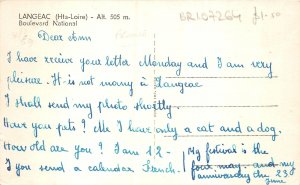 LANGEAC (Hte-Loire) - Alt. 505 m.
Boulevard National
BR107264
£1.50
Dear Ann
I have receive your letter Monday and I am very
pleisae. It is not many a Langeac
I shall send my photo shortly.
Have you pets? Me I have only a cat and a dog.
How old are you? I am 12 - My festival is the
four may and my
I you send a calendar French.
anniversary the 23
june